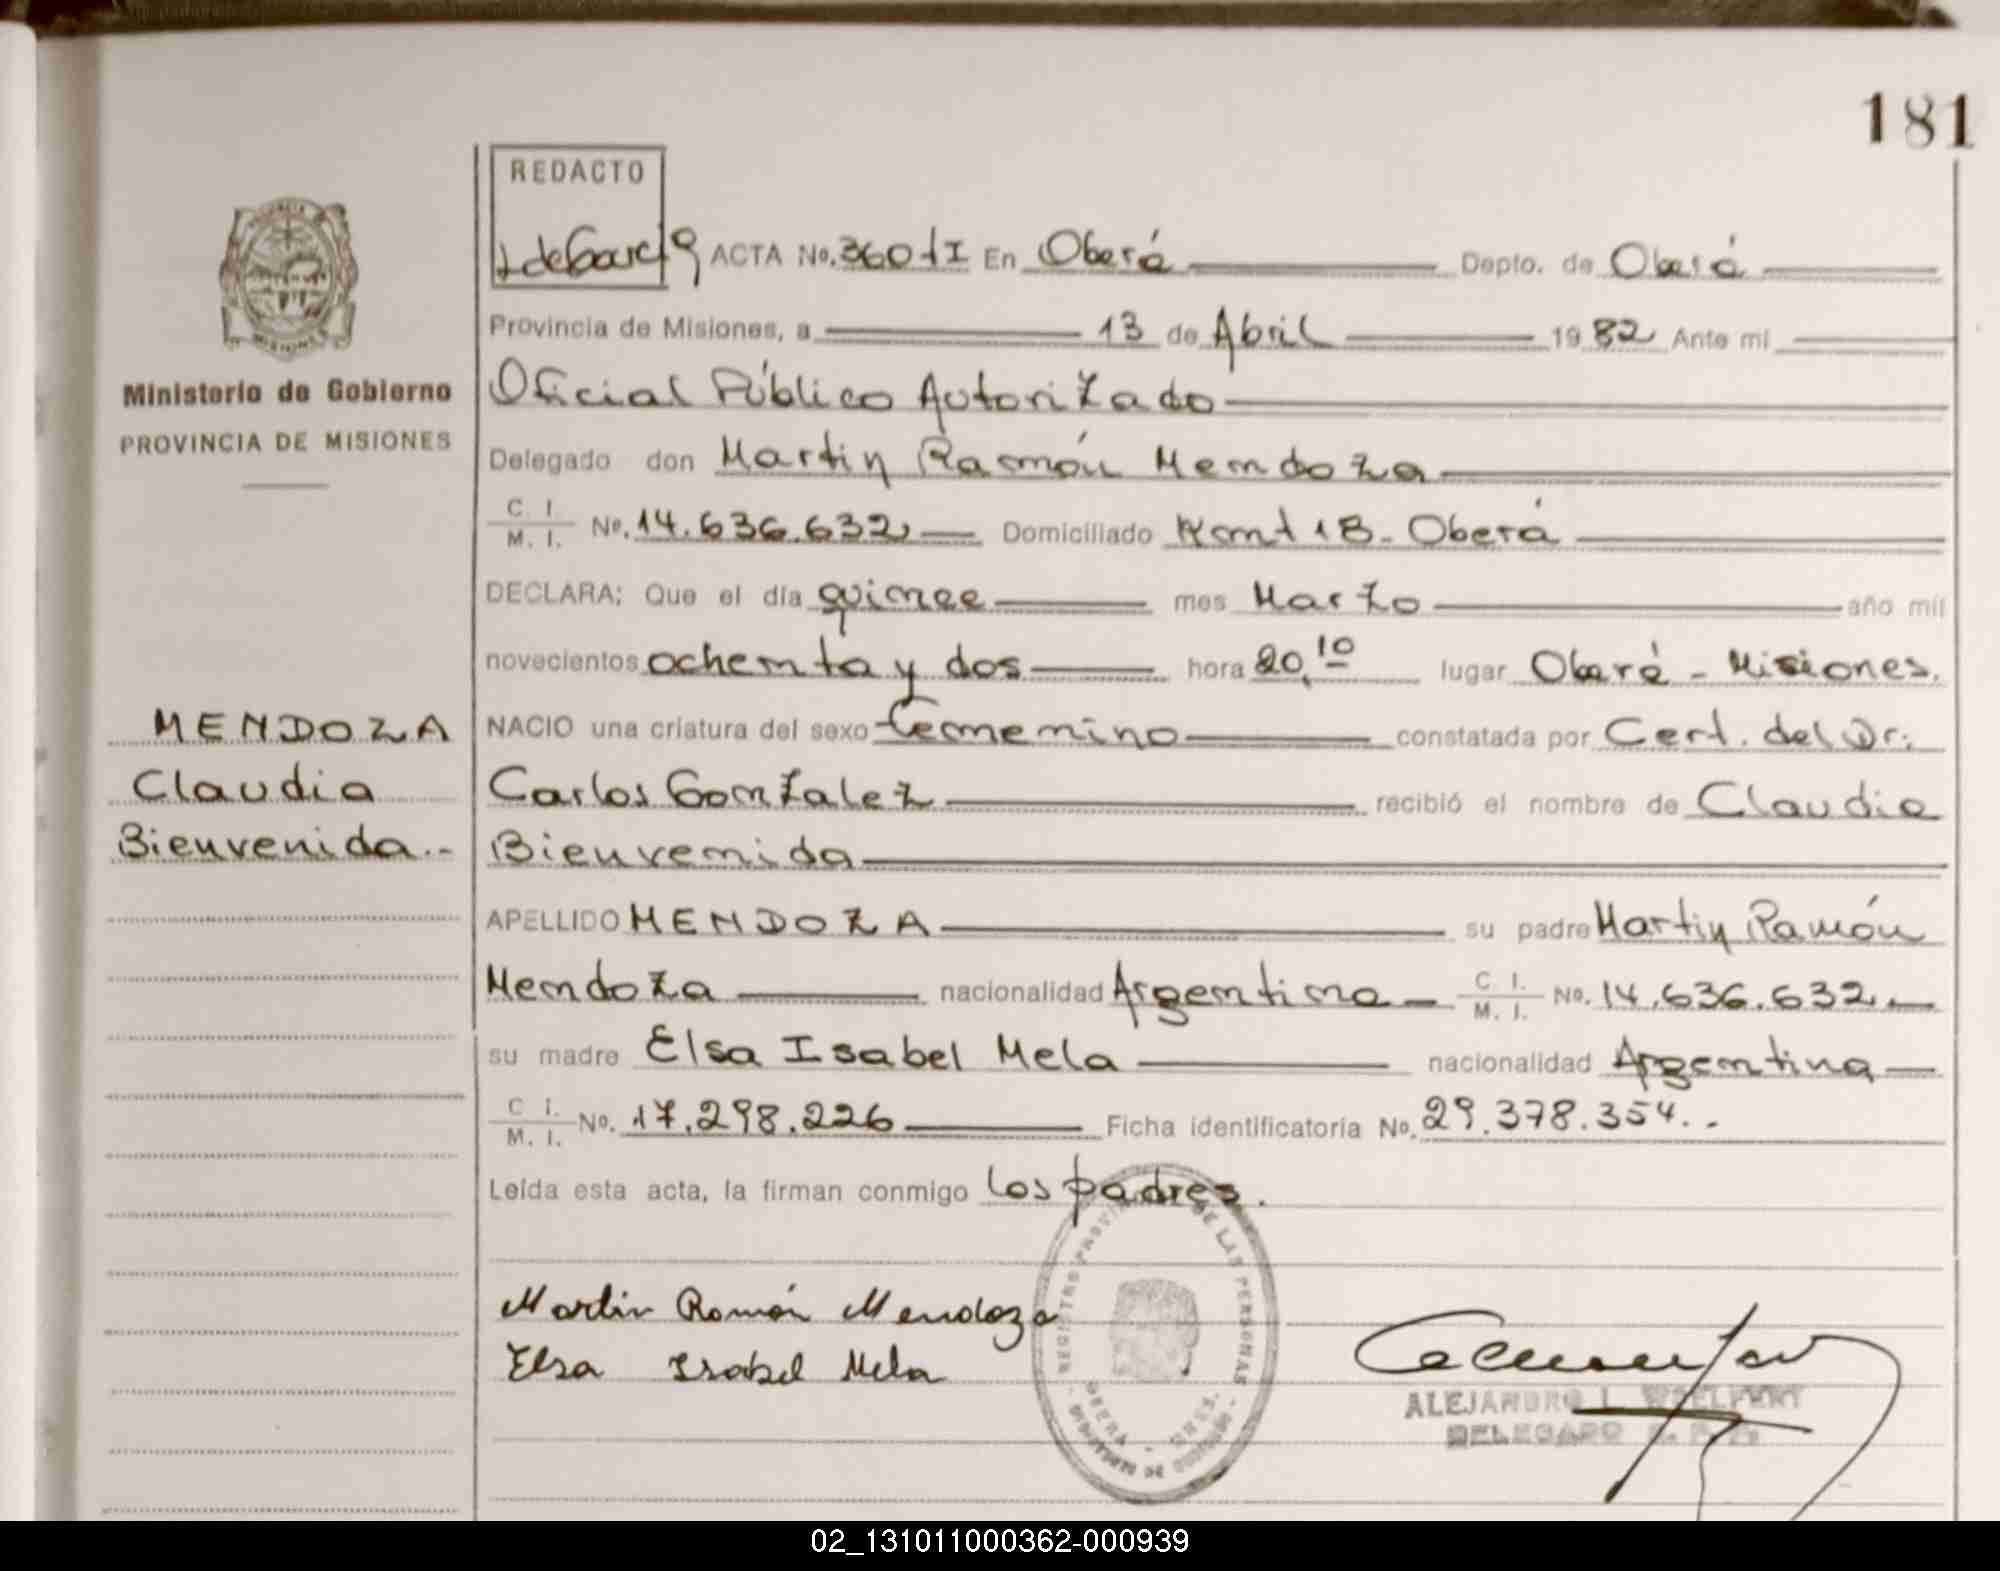 181
REDACTO
LdeGarcia ACTA No. 360 tI En Oberá Depto. de Oberá
Provincia de Misiones, a 13 de Abril 1982 Ante mi
Ministerio de Gobierno
PROVINCIA DE MISIONES
Oficial Público Autorizado
Delegado don Martin Ramón Mendoza
C. I. / M. I. No. 14.636.632 Domiciliado Kmt 18 - Oberá
DECLARA: Que el día quince mes Marzo año mil
novecientos ochenta y dos hora 20,10 lugar Oberá - Misiones.
MENDOZA
Claudia
Bienvenida.-
NACIO una criatura del sexo femenino constatada por Cert. del Dr.
Carlos Gonzalez recibió el nombre de Claudia
Bienvenida
APELLIDO MENDOZA su padre Martin Ramón
Mendoza nacionalidad Argentina - C. I. / M. I. No. 14.636.632.-
su madre Elsa Isabel Mela nacionalidad Argentina -
C. I. / M. I. No. 17.298.226 Ficha identificatoria No. 29.378.354.-
Leída esta acta, la firman conmigo los padres.
Martin Ramón Mendoza
Elsa Isabel Mela
REGISTRO PROVINCIAL DE LAS PERSONAS
OBERA - MNES.
ALEJANDRO L. WOELFERT
DELEGADO R. P. P.
02_131011000362-000939